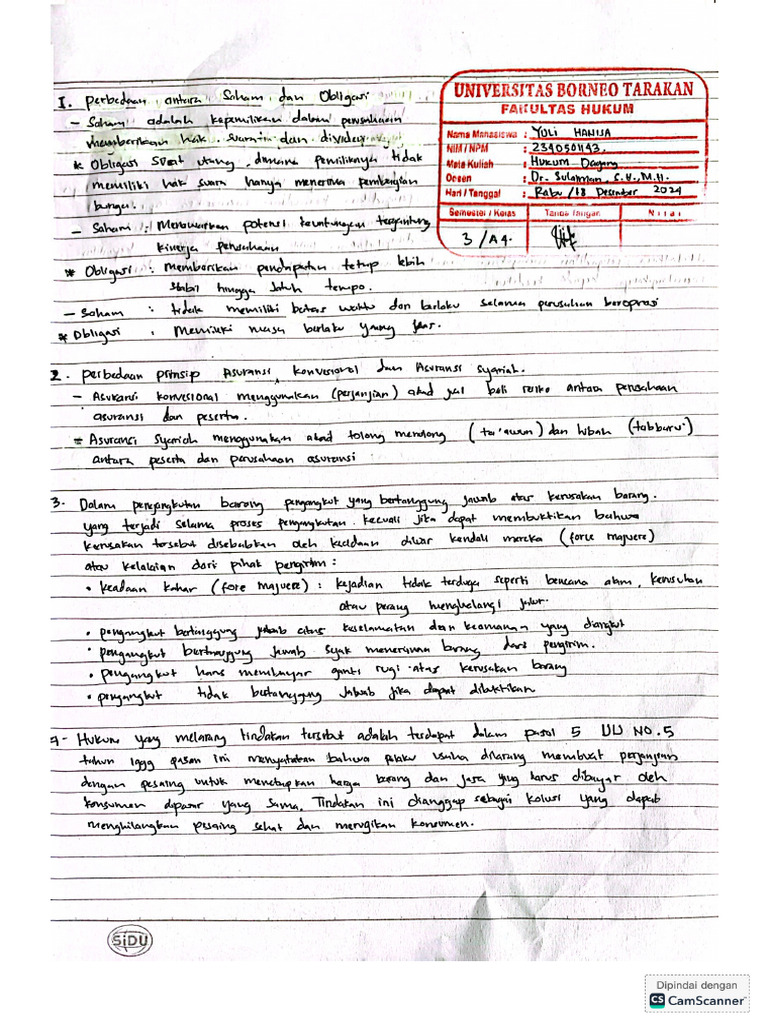 UNIVERSITAS BORNEO TARAKAN
FAKULTAS HUKUM
Nama Mahasiswa : YULI HANIJA
NIM / NPM : 2340501143.
Mata Kuliah : Hukum Dagang
Dosen : Dr. Sulaiman S.H., M.H.
Hari / Tanggal : Rabu / 18 Desember 2024
Semester / Kelas Tanda Tangan Nilai
3 / A4.
1. perbedaan antara Saham dan Obligasi
- Saham adalah kepemilikan dalam perusahaan
memberikan hak suara dan dividen
* Obligasi surat utang, dimana pemiliknya tidak
memiliki hak suara hanya menerima pembagian
bunga.
- Saham : Menawarkan potensi keuntungan tergantung
kinerja perusahaan
* Obligasi : Memberikan pendapatan tetap lebih
stabil hingga jatuh tempo.
- Saham : tidak memiliki batas waktu dan berlaku selama perusahan beroprasi
* Obligasi : Memiliki masa berlaku yang jelas.
2. perbedaan prinsip Asuransi konvesional dan Asuransi syariah.
- Asuransi konvesional menggunakan (perjanjian) akad jual beli resiko antara perusahaan
asuransi dan peserta.
* Asuransi syariah menggunakan akad tolong menolong (ta'awun) dan hibah (tabbaru')
antara peserta dan perusahaan asuransi
3. Dalam pengangkutan barang pengangkut yang bertanggung jawab atas kerusakan barang.
yang terjadi selama proses pengangkutan. kecuali jika dapat membuktikan bahwa
kerusakan tersebut disebabkan oleh keadaan diluar kendali mereka (force majuere)
atau kelalaian dari pihak pengirim :
• keadaan kahar (fore majuere) : kejadian tidak terduga seperti bencana alam, kerusuhan
atau perang menghalangi jalur.
• pengangkut bertanggung jawab atas keselamatan dan keamanan yang diangkut
• pengangkut bertanggung jawab sejak menerima barang dari pengirim.
• pengangkut harus membayar ganti rugi atas kerusakan barang
• pengangkut tidak bertanggung jawab jika dapat dibuktikan
4- Hukum yang melarang tindakan tersebut adalah terdapat dalam pasal 5 UU NO.5
tahun 1999 pasal ini menyatakan bahwa pelaku usaha dilarang membuat perjanjian
dengan pesaing untuk menetapkan harga barang dan jasa yang harus dibayar oleh
konsumen dipasar yang sama. Tindakan ini dianggap sebagai kolusi yang dapat
menghilangkan pesaing sehat dan merugikan konsumen.
SiDU
Dipindai dengan
CS CamScanner